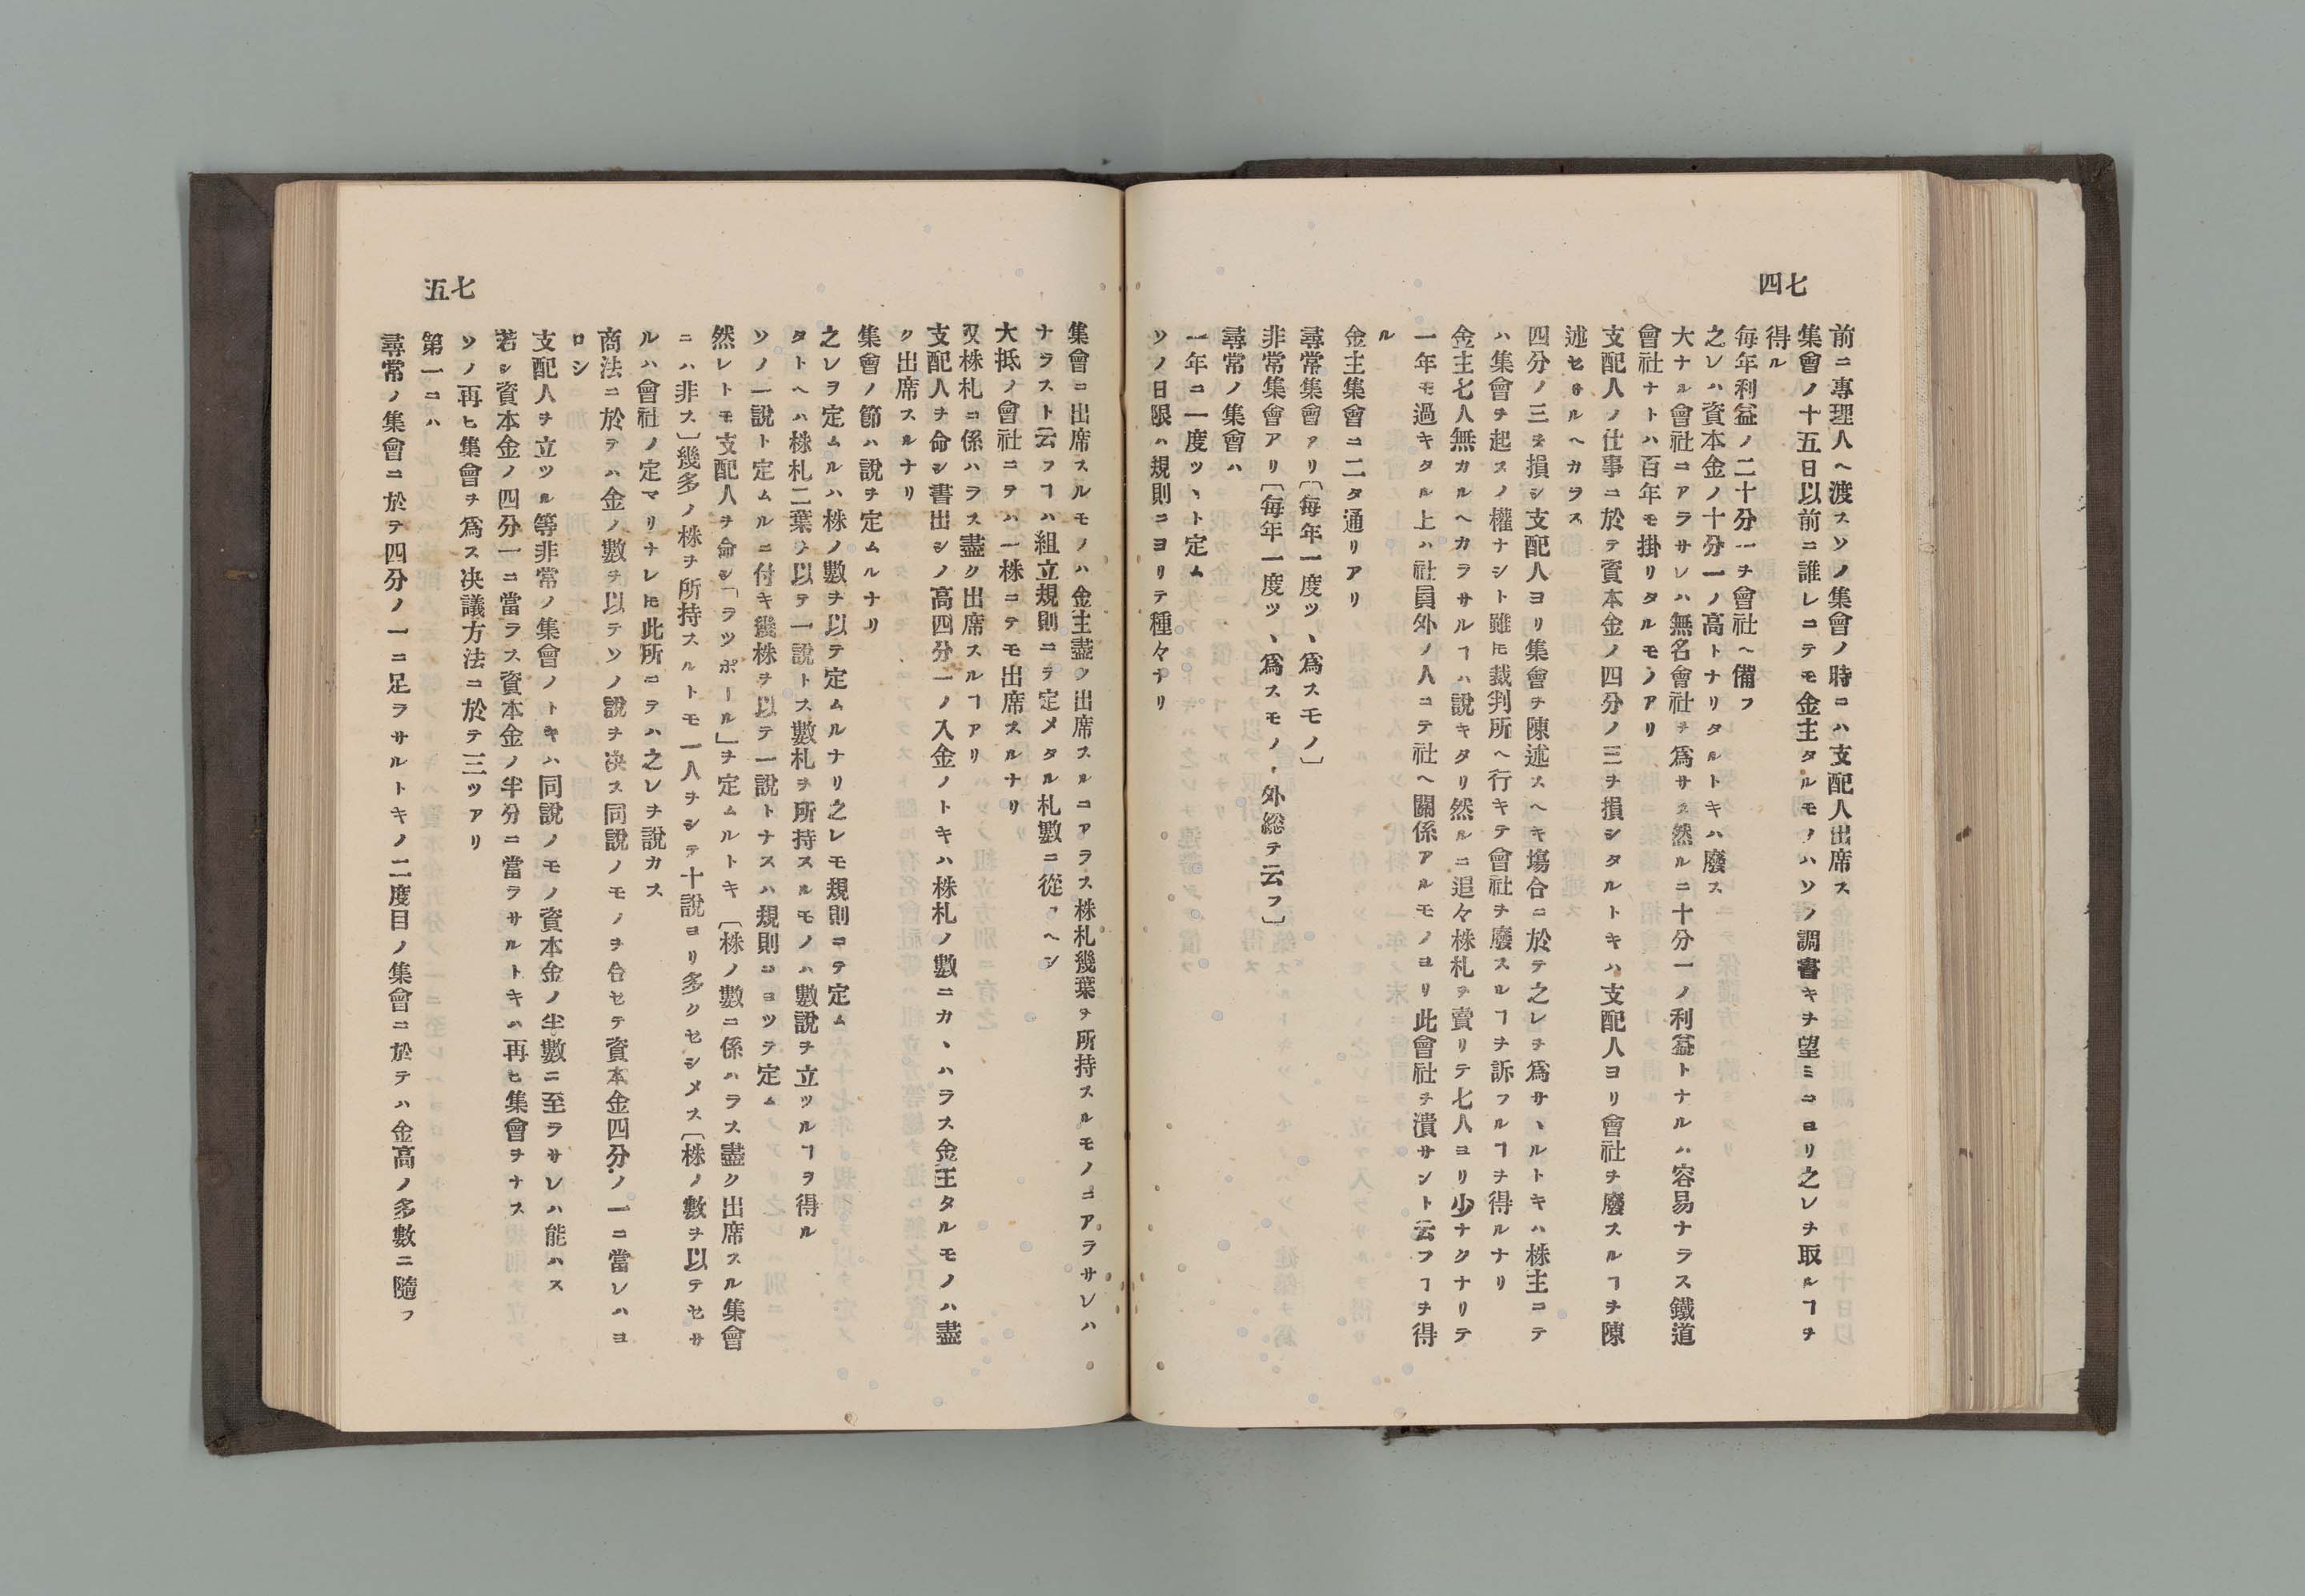 七四
前ニ專理人ヘ渡スソノ集會ノ時ニハ支配人出席ス
集會ノ十五日以前ニ誰レニテモ金主タルモノハソノ調書キヲ望ミニヨリ之レヲ取ルヿヲ
得ル
毎年利益ノ二十分一ヲ會社ヘ備フ
之レハ資本金ノ十分一ノ高トナリタルトキハ廢ス
大ナル會社ニアラサレハ無名會社ヲ爲サス然ルニ十分一ノ利益トナルハ容易ナラス鐵道
會社ナトハ百年モ掛リタルモノアリ
支配人ノ仕事ニ於テ資本金ノ四分ノ三ヲ損シタルトキハ支配人ヨリ會社ヲ廢スルヿヲ陳
述セサルヘカラス
四分ノ三ヲ損シ支配人ヨリ集會ヲ陳述スヘキ塲合ニ於テ之レヲ爲サヽルトキハ株主ニテ
ハ集會ヲ起スノ權ナシト雖𪜈裁判所ヘ行キテ會社ヲ廢スルヿヲ訴フルヿヲ得ルナリ
金主七人無カルヘカラサルヿハ說キタリ然ルニ追々株札ヲ賣リテ七人ヨリ少ナクナリテ
一年モ過キタル上ハ社員外ノ人ニテ社ヘ關係アルモノヨリ此會社ヲ潰サント云フヿヲ得
ル
金主集會ニ二タ通リアリ
尋常集會アリ〔每年一度ツヽ爲スモノ〕
非常集會アリ〔每年一度ツヽ爲スモノヽ外総テ云フ〕
尋常ノ集會ハ
一年ニ一度ツヽト定ム
ソノ日限ハ規則ニヨリテ種々ナリ
七五
集會ニ出席スルモノハ金主盡ク出席スルニアラス株札幾葉ヲ所持スルモノニアラサレハ
ナラスト云フヿハ組立規則ニテ定メタル札數ニ從フヘシ
大抵ノ會社ニテハ一株ニテモ出席スルナリ
又株札ニ係ハラス盡ク出席スルヿアリ
支配人ヲ命シ書出シノ高四分一ノ入金ノトキハ株札ノ數ニカヽハラス金主タルモノハ盡
ク出席スルナリ
集會ノ節ハ說ヲ定ムルナリ
之レヲ定ムルハ株ノ數ヲ以テ定ムルナリ之レモ規則ニテ定ム
タトヘハ株札二葉ヲ以テ一說トス數札ヲ所持スルモノハ數說ヲ立ツルヿヲ得ル
ソノ一說ト定ムルニ付キ幾株ヲ以テ一說トナスハ規則ニヨツテ定ム
然レトモ支配人ヲ命シ「ラツポール」ヲ定ムルトキ〔株ノ數ニ係ハラス盡ク出席スル集會
ニハ非ス〕幾多ノ株ヲ所持スルトモ一人ヲシテ十說ヨリ多クセシメス〔株ノ數ヲ以テセサ
ルハ會社ノ定マリナレ𪜈此所ニテハ之レヲ說カス
商法ニ於テハ金ノ數ヲ以テソノ說ヲ决ス同說ノモノヲ合セテ資本金四分ノ一ニ當レハヨ
ロシ
支配人ヲ立ツル等非常ノ集會ノトキハ同說ノモノ資本金ノ半數ニ至ラサレハ能ハス
若シ資本金ノ四分一ニ當ラス資本金ノ半分ニ當ラサルトキハ再ヒ集會ヲナス
ソノ再ヒ集會ヲ爲ス决議方法ニ於テ三ツアリ
第一ニハ
尋常ノ集會ニ於テ四分ノ一ニ足ヲサルトキノ二度目ノ集會ニ於テハ金高ノ多數ニ隨フ